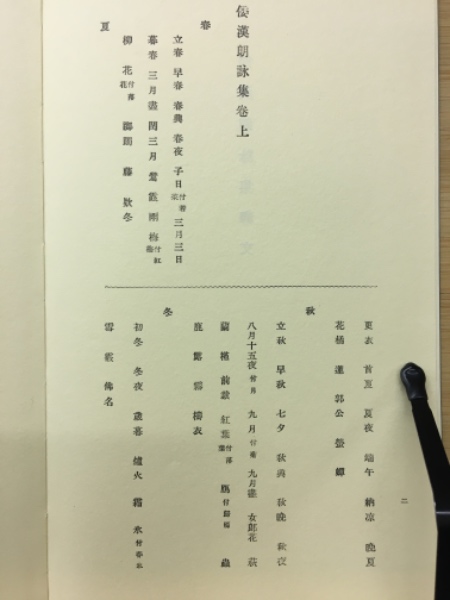 倭漢朗詠集卷上
春
立春 早春 春興 春夜 子日付若菜 三月三日
暮春 三月盡 閏三月 鶯 霞 雨 梅付紅梅
柳 花付落花 躑躅 藤 款冬
夏
更衣 首夏 夏夜 端午 納凉 晩夏
花橘 蓮 郭公 螢 蟬
秋
立秋 早秋 七夕 秋興 秋晩 秋夜
八月十五夜付月 九月付菊 九月盡 女郎花 萩
蘭 槿 前栽 紅葉付落葉 鴈付歸鴈 蟲
鹿 露 霧 擣衣
冬
初冬 冬夜 歲暮 爐火 霜 氷付春氷
雪 霰 佛名
二